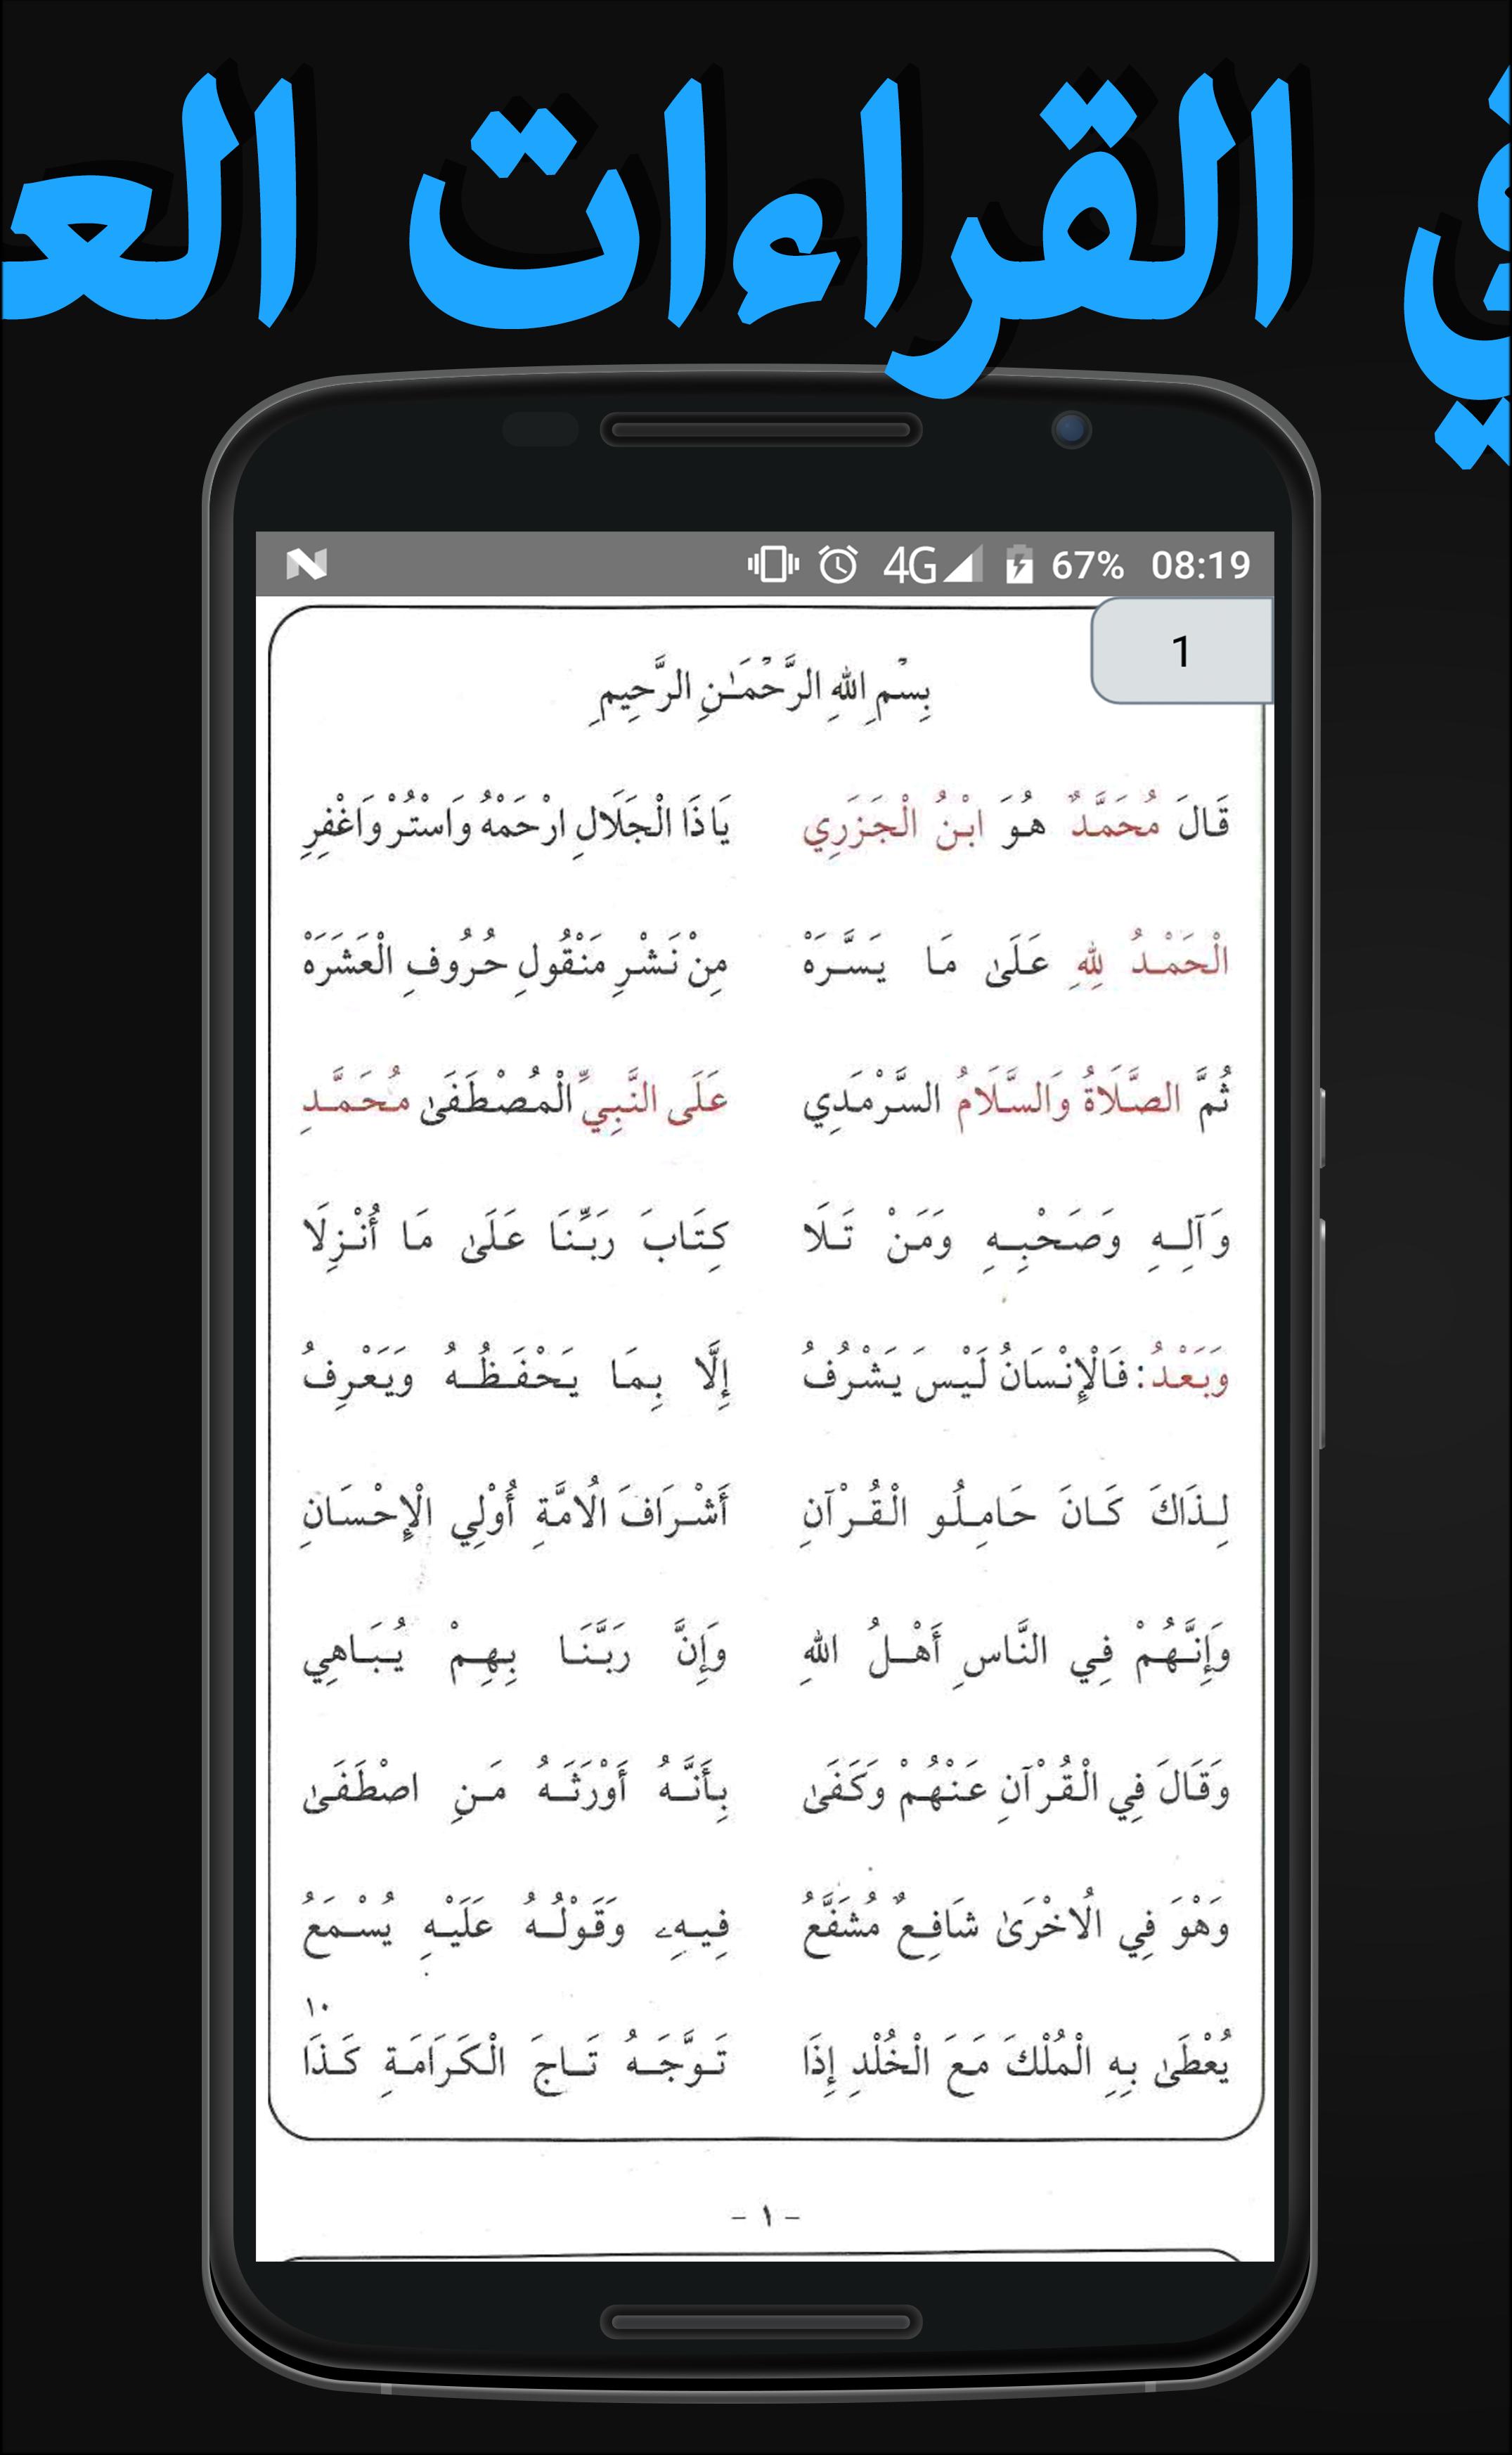 ي القراءات الع
4G 67% 08:19
1
بِسْمِ اللهِ الرَّحْمَـٰنِ الرَّحِيمِ
قَالَ مُحَمَّدٌ هُوَ ابْنُ الْجَزَرِي يَاذَا الْجَلَالِ ارْحَمْهُ وَاسْتُرْ وَاغْفِرِ
الْحَمْدُ لِلهِ عَلَىٰ مَا يَسَّرَهْ مِنْ نَشْرِ مَنْقُولِ حُرُوفِ الْعَشَرَهْ
ثُمَّ الصَّلَاةُ وَالسَّلَامُ السَّرْمَدِي عَلَى النَّبِيِّ الْمُصْطَفَىٰ مُحَمَّدِ
وَآلِهِ وَصَحْبِهِ وَمَنْ تَلَا كِتَابَ رَبِّنَا عَلَىٰ مَا أُنْزِلَا
وَبَعْدُ: فَالْإِنْسَانُ لَيْسَ يَشْرُفُ إِلَّا بِمَا يَحْفَظُهُ وَيَعْرِفُ
لِذَاكَ كَانَ حَامِلُو الْقُرْآنِ أَشْرَافَ الُامَّةِ أُوْلِي الْإِحْسَانِ
وَإِنَّهُمْ فِي النَّاسِ أَهْلُ اللهِ وَإِنَّ رَبَّنَا بِهِمْ يُبَاهِي
وَقَالَ فِي الْقُرْآنِ عَنْهُمْ وَكَفَىٰ بِأَنَّهُ أَوْرَثَهُ مَنِ اصْطَفَىٰ
وَهْوَ فِي الُاخْرَىٰ شَافِعٌ مُشَفَّعُ فِيهِۦ وَقَوْلُهُ عَلَيْهِ يُسْمَعُ
١٠
يُعْطَىٰ بِهِ الْمُلْكَ مَعَ الْخُلْدِ إِذَا تَوَّجَهُ تَاجَ الْكَرَامَةِ كَذَا
- ١ -